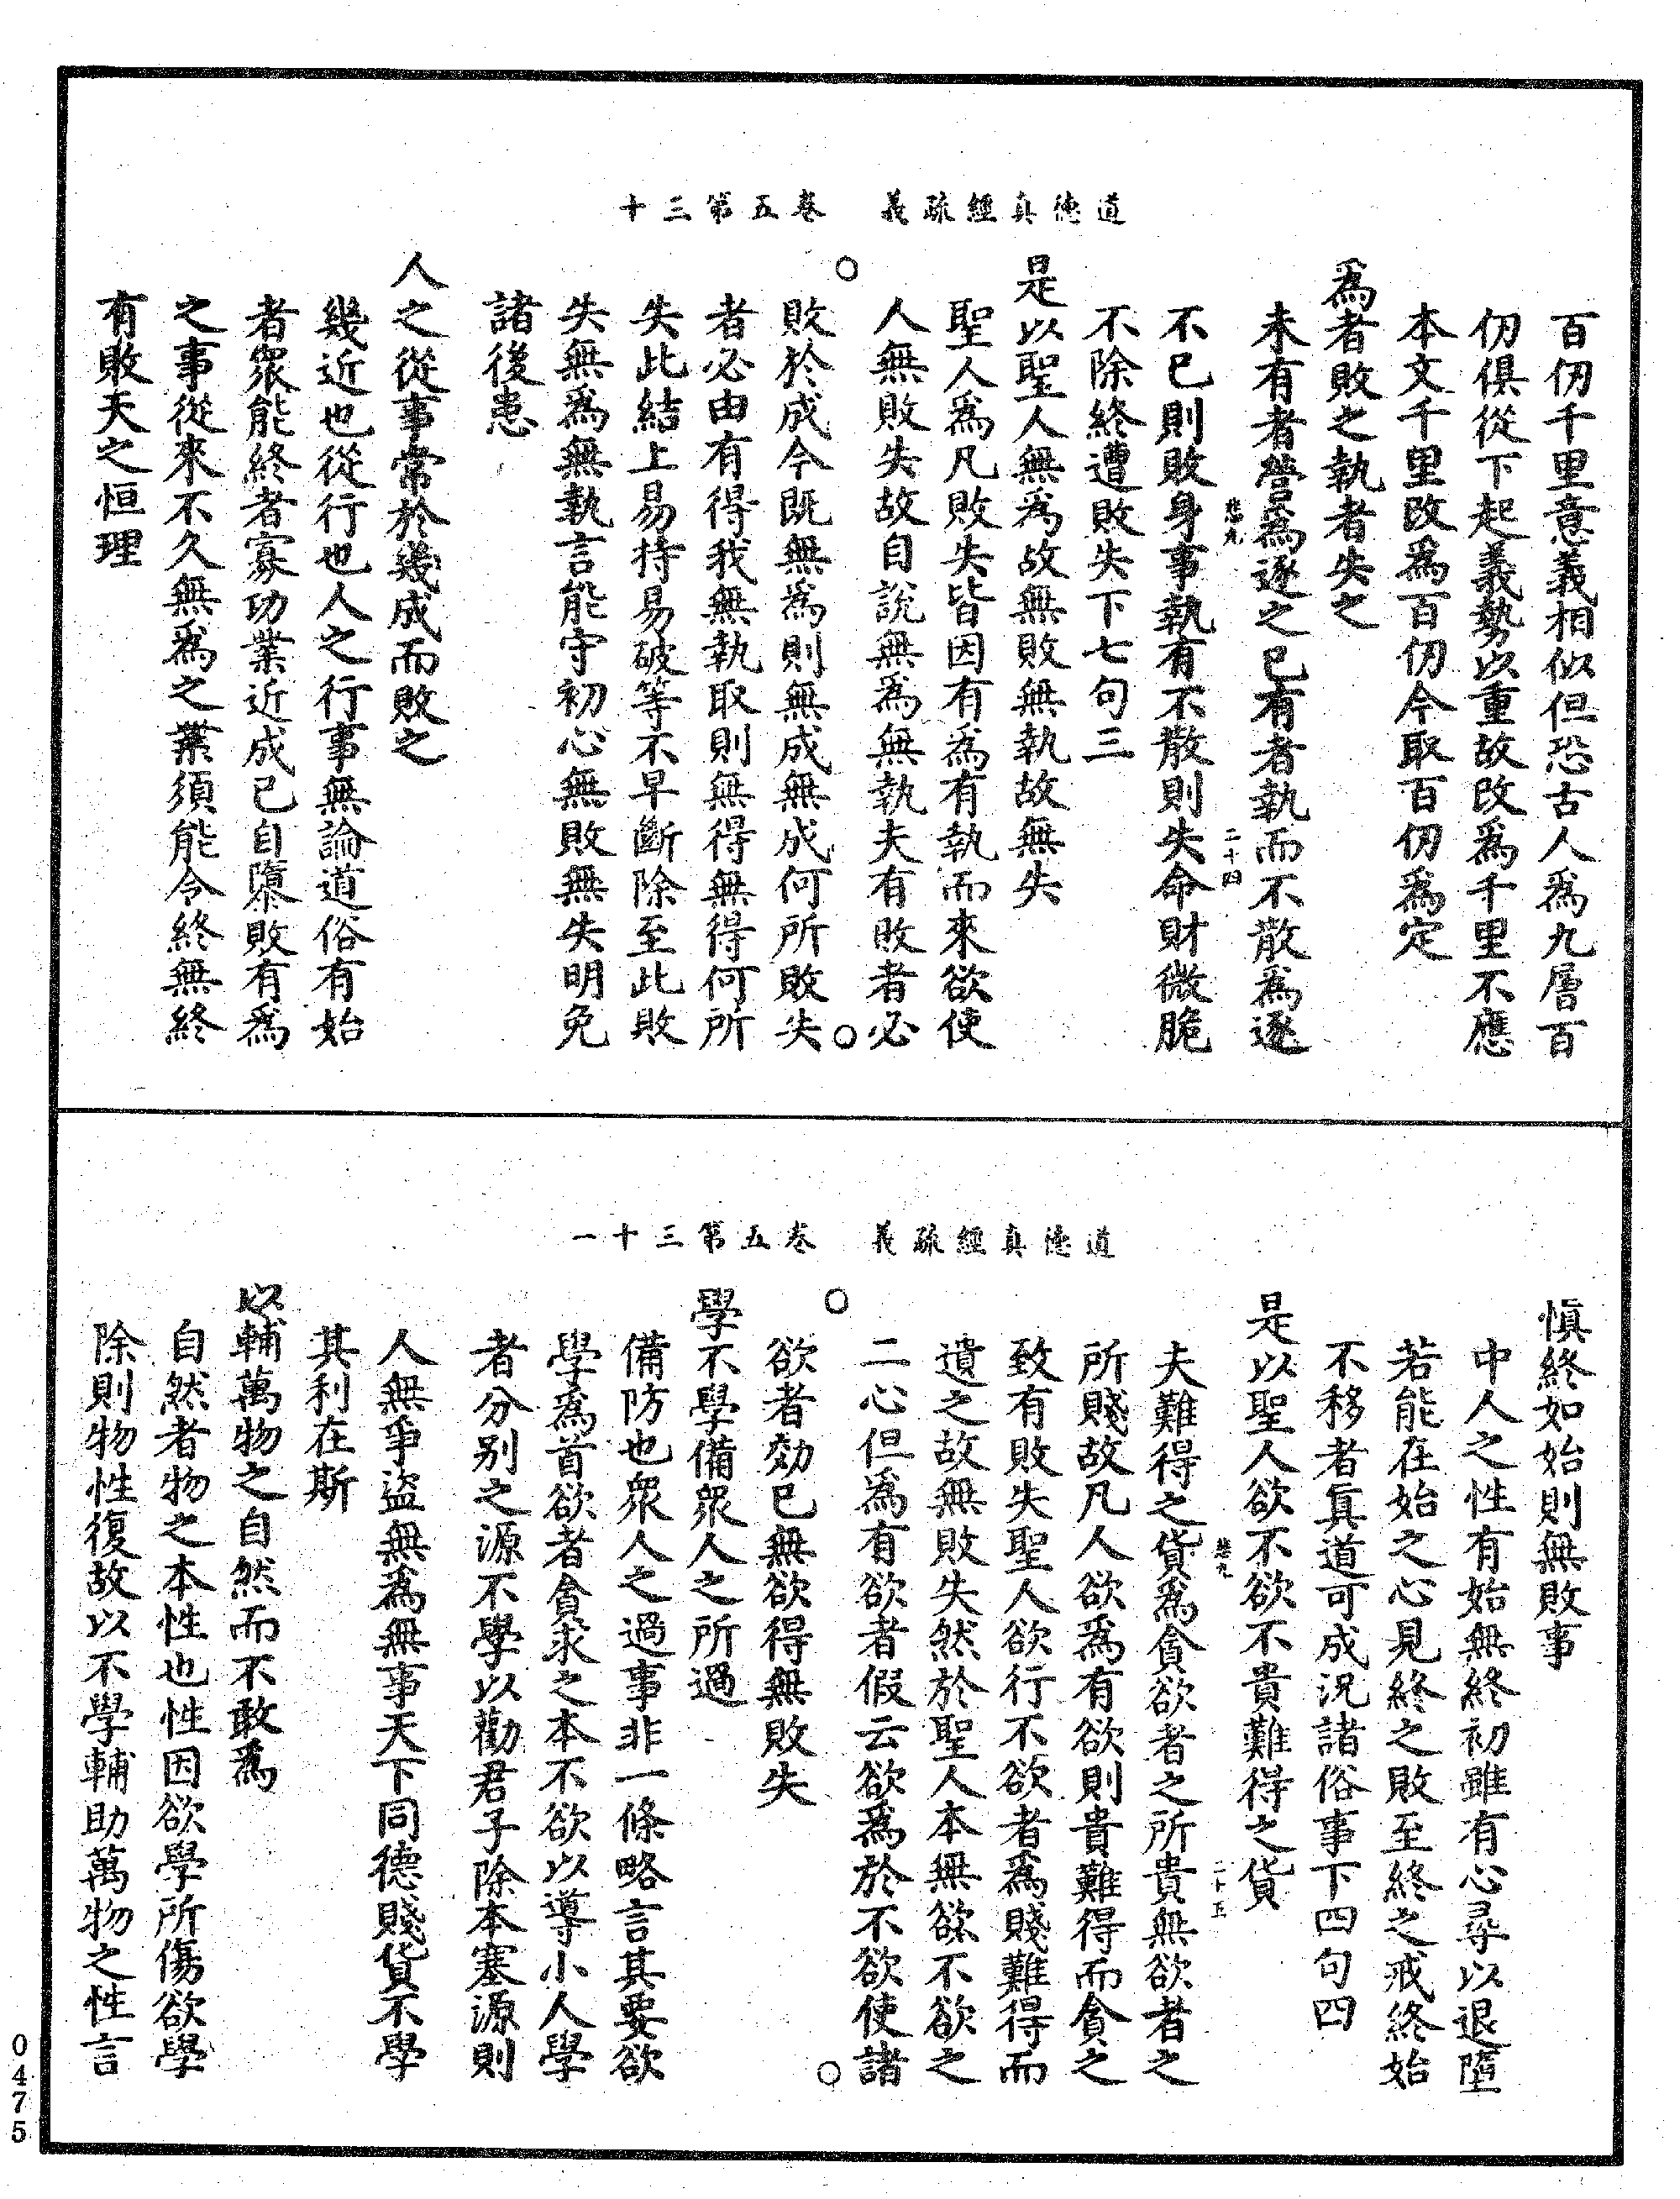 道德真經疏義　卷五第三十
百仞千里意義相似但恐古人爲九層百
仞俱從下起義勢以重故改爲千里不應
本文千里改爲百仞今取百仞爲定
爲者敗之執者失之
未有者營爲逐之已有者執而不散爲逐
不已則敗身事執有不散則失命財微脆
不除終遭敗失下七句三
是以聖人無爲故無敗無執故無失
聖人爲凡敗失皆因有爲有執而來欲使
人無敗失故自說無爲無執夫有敗者必
敗於成今既無爲則無成無成何所敗失
者必由有得我無執取則無得無得何所
失此結上易持易破等不早斷除至此敗
失無爲無執言能守初心無敗無失明免
諸後患
人之從事常於幾成而敗之
幾近也從行也人之行事無論道俗有始
者眾能終者寡功業近成已自隳敗有爲
之事從來不久無爲之業須能令終無終
有敗天之恒理
二十四
道德真經疏義　卷五第三十一
愼終如始則無敗事
中人之性有始無終初雖有心尋以退墮
若能在始之心見終之敗至終之戒終始
不移者眞道可成況諸俗事下四句四
是以聖人欲不欲不貴難得之貨
夫難得之貨爲貪欲者之所貴無欲者之
所賤故凡人欲爲有欲則貴難得而貪之
致有敗失聖人欲行不欲者爲賤難得而
遺之故無敗失然於聖人本無欲不欲之
二心但爲有欲者假云欲爲於不欲使諸
欲者効已無欲得無敗失
學不學備眾人之所過
備防也眾人之過事非一條略言其要欲
學爲首欲者貪求之本不欲以導小人學
者分別之源不學以勸君子除本塞源則
人無爭盜無爲無事天下同德賤貨不學
其利在斯
以輔萬物之自然而不敢爲
自然者物之本性也性因欲學所傷欲學
除則物性復故以不學輔助萬物之性言
二十五
0475